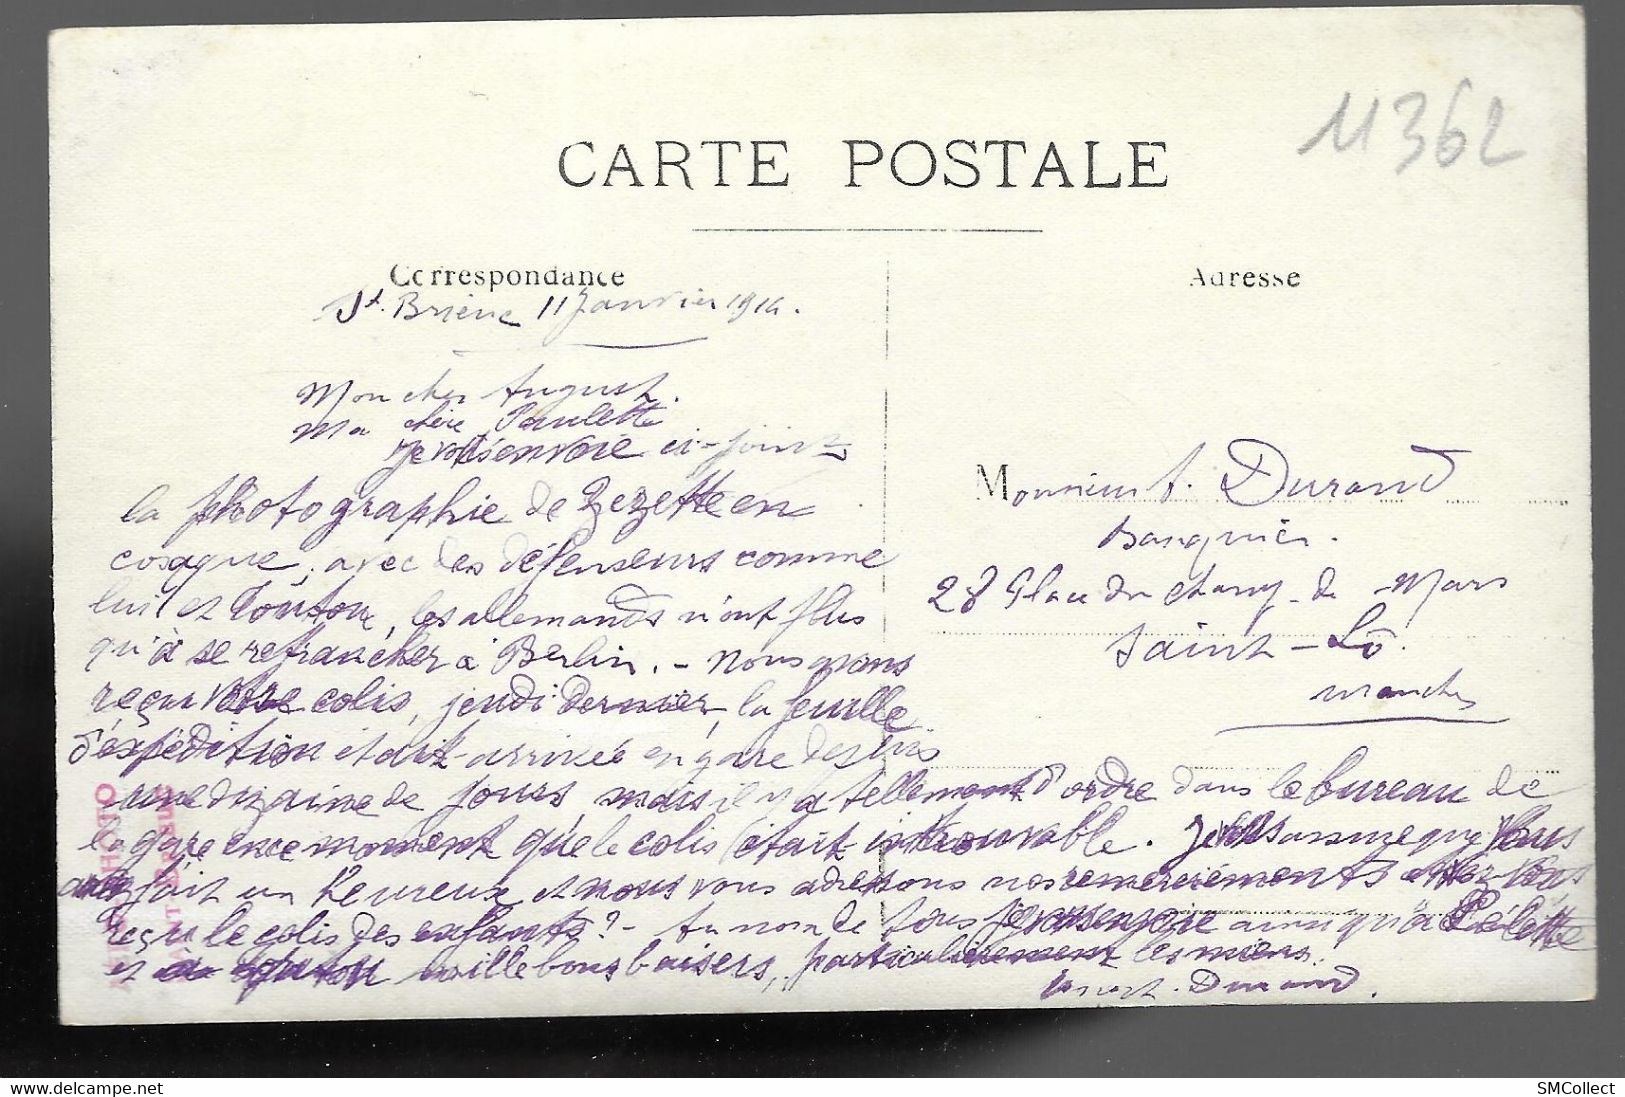 11362
CARTE POSTALE
Correspondance
Adresse
St. Brieuc 11 Janvier 191
Mon cher August.
Ma chère Paulette
Je vous envoie ci-joint
la photographie de Zezette en
cosaque, avec des défenseurs comme
lui et Touton, les allemands n'ont plus
qu'à se retrancher à Berlin. - Nous avons
reçu votre colis, jeudi dernier, la feuille
d'expédition était arrivée en gare depuis
une dizaine de jours mais il y a tellement d'ordre dans le bureau de
la gare en ce moment que le colis était introuvable. Je vous assure que vous
avez fait un heureux et nous vous adressons nos remerciements avez-vous
reçu le colis des enfants ? - Au nom de tous je vous envoie ainsi qu'à
et mille bons baisers, particulièrement les miens.
Durand.
Monsieur A. Durand
Banquier.
28 Place du Champ-de-Mars
Saint-Lô.
Manche
PHOTO
SMCollect